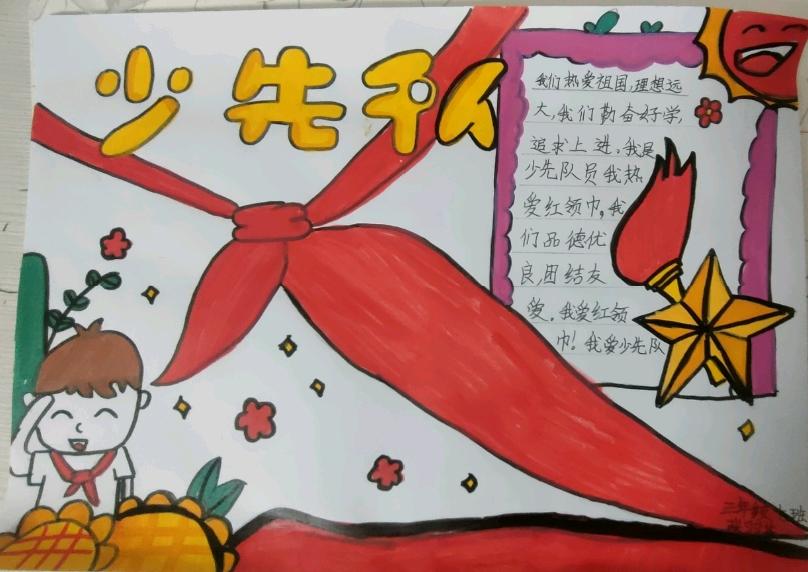 少先队
我们热爱祖国,理想远
大,我们勤奋好学,
追求上进。我是
少先队员我热
爱红领巾,我
们品德优
良,团结友
爱。我爱红领
巾!我爱少先队
三年级
班